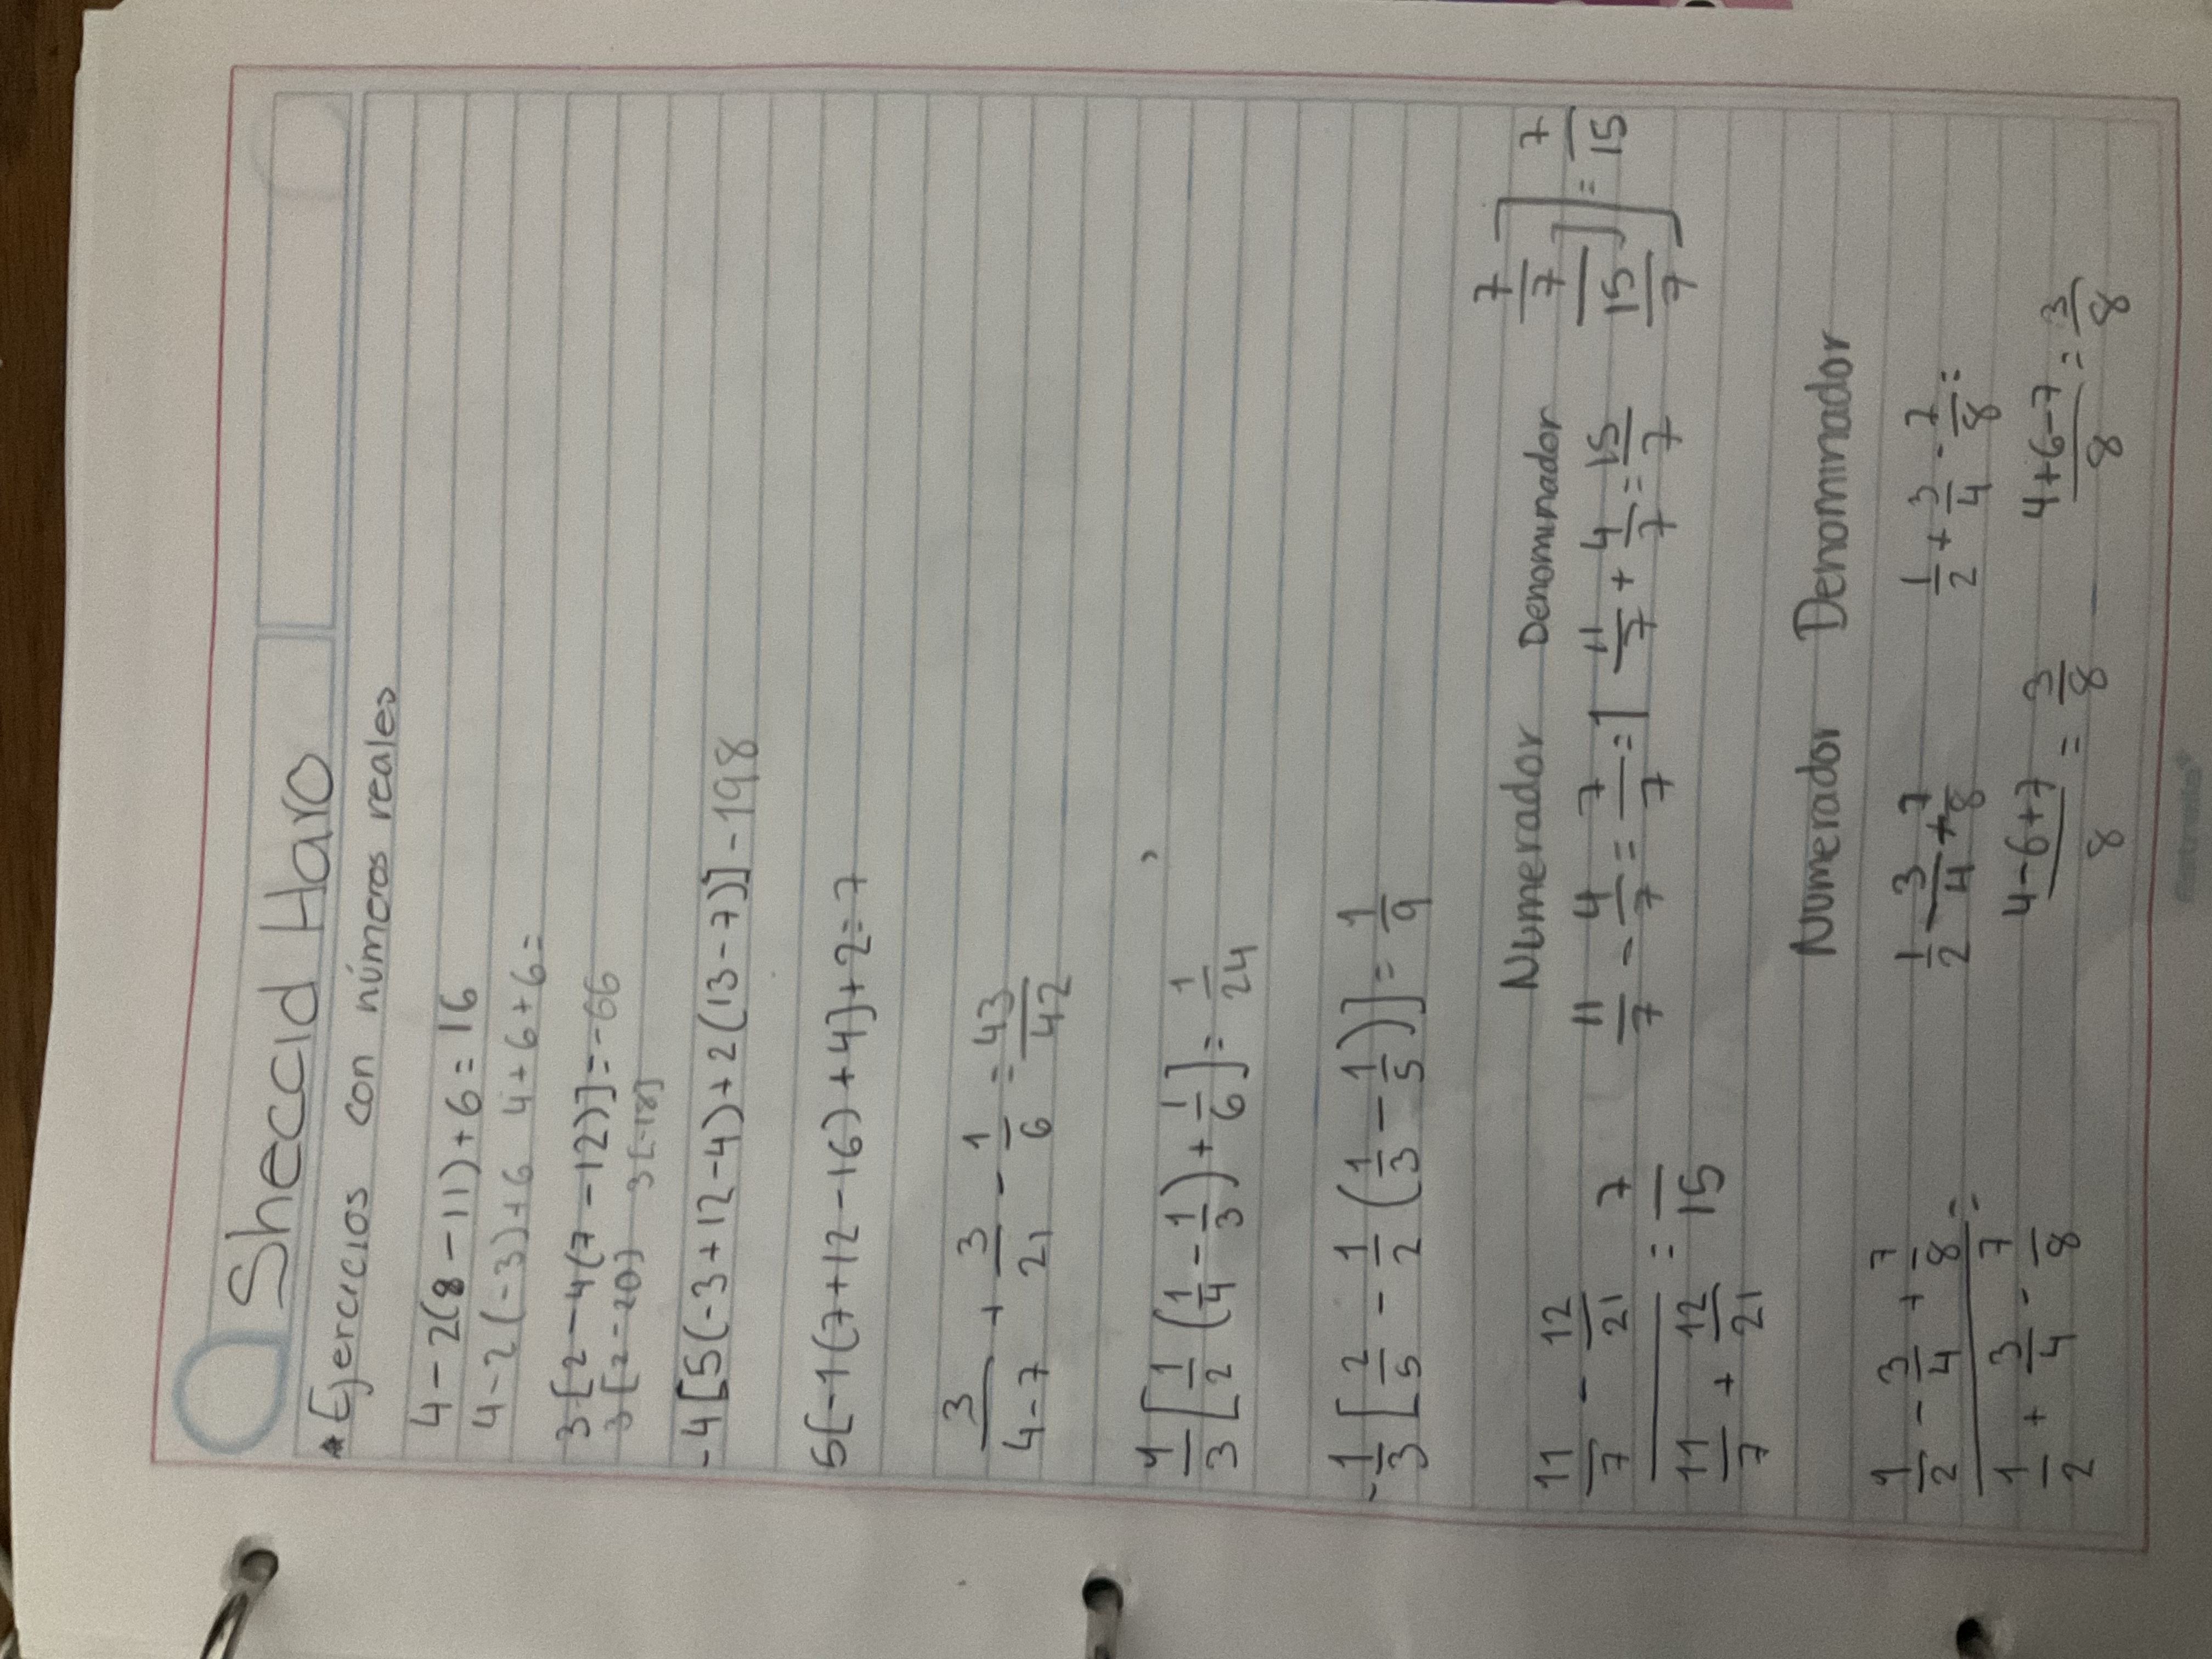 Sheccid Haro
* Ejercicios con números reales
4-2(8-11)+6=16
4-2(-3)+6 4+6+6=
3[2-4(7-12)]=-66
3[2-20] 3[-18]
-4[5(-3+12-4)+2(13-7)]-198
5[-1(7+12-16)+4]+2=7
3/4-7 + 3/21 - 1/6 = 43/42
1/3[1/2(1/4-1/3)+1/6]=1/24
-1/3[2/5-1/2(1/3-1/5)]=1/9
Numerador Denominador
11/7 - 12/21 / 11/7 + 12/21 = 7/15 11/7 - 4/7 = 7/7 = 1 11/7 + 4/7 = 15/7 7/7 / 15/7 ]] = 7/15
Numerador Denominador
1/2 - 3/4 + 7/8 / 1/2 + 3/4 - 7/8 = 1/2 - 3/4 + 7/8 1/2 + 3/4 - 7/8 =
4-6+7/8 = 3/8 4+6-7/8 = 3/8